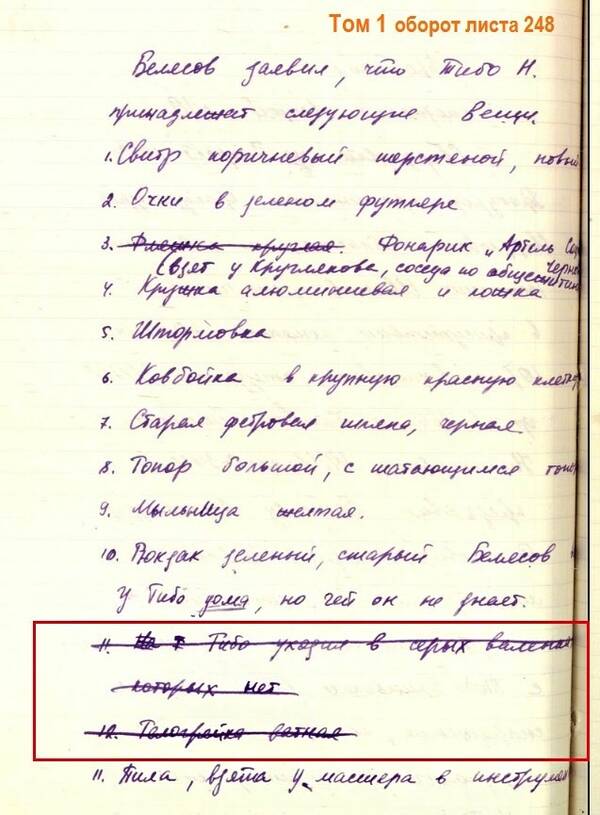 Том 1 оборот листа 248
Белесов заявил, что Тибо Н.
принадлежат следующие вещи.
1. Свитр коричневый шерстеной, новый
2. Очки в зеленом футляре
3. Фляжка круглая. Фонарик „Артель
(взят у Круглякова, соседа по общежитию
4. Кружка алюминиевая и ложка
5. Штормовка
6. Ковбойка в крупную красную клетку
7. Старая фетровая шляпа, черная
8. Топор большой, с шатающимся
9. Мыльница желтая.
10. Рюкзак зеленый, старый Белесов
у Тибо дома, но чей он не знает.
11. Тибо уходил в серых валенках
которых нет
12. Телогрейка ватная
11. Пила, взята у мастера в